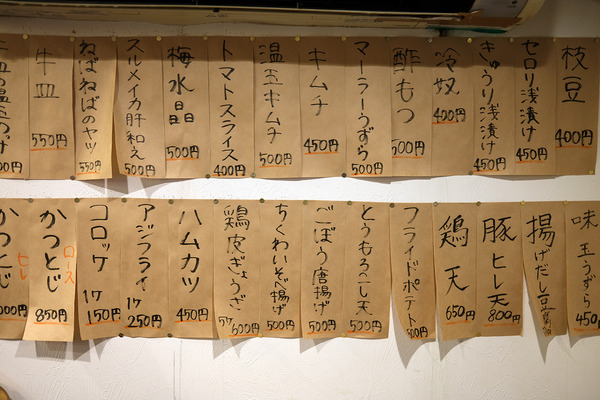 枝豆 400円
セロリ浅漬け 450円
きゅうり浅漬け 450円
冷奴 400円
酢もつ 500円
マーラーうずら 500円
キムチ 450円
温玉キムチ 500円
トマトスライス 400円
梅水晶 500円
スルメイカ肝和え 500円
ねばねばのヤツ 550円
牛皿 550円
味玉うずら 450
揚げだし豆腐
豚ヒレ天 800円
鶏天 650円
フライドポテト 500円
とうもろこし天 500円
ごぼう唐揚げ 500円
ちくわいそべ揚げ 500円
鶏皮ぎょうざ 5ケ 600円
ハムカツ 450円
アジフライ 1ケ 250円
コロッケ 1ケ 150円
かつとじ ロース 850円
かつとじ ヒレ 000円